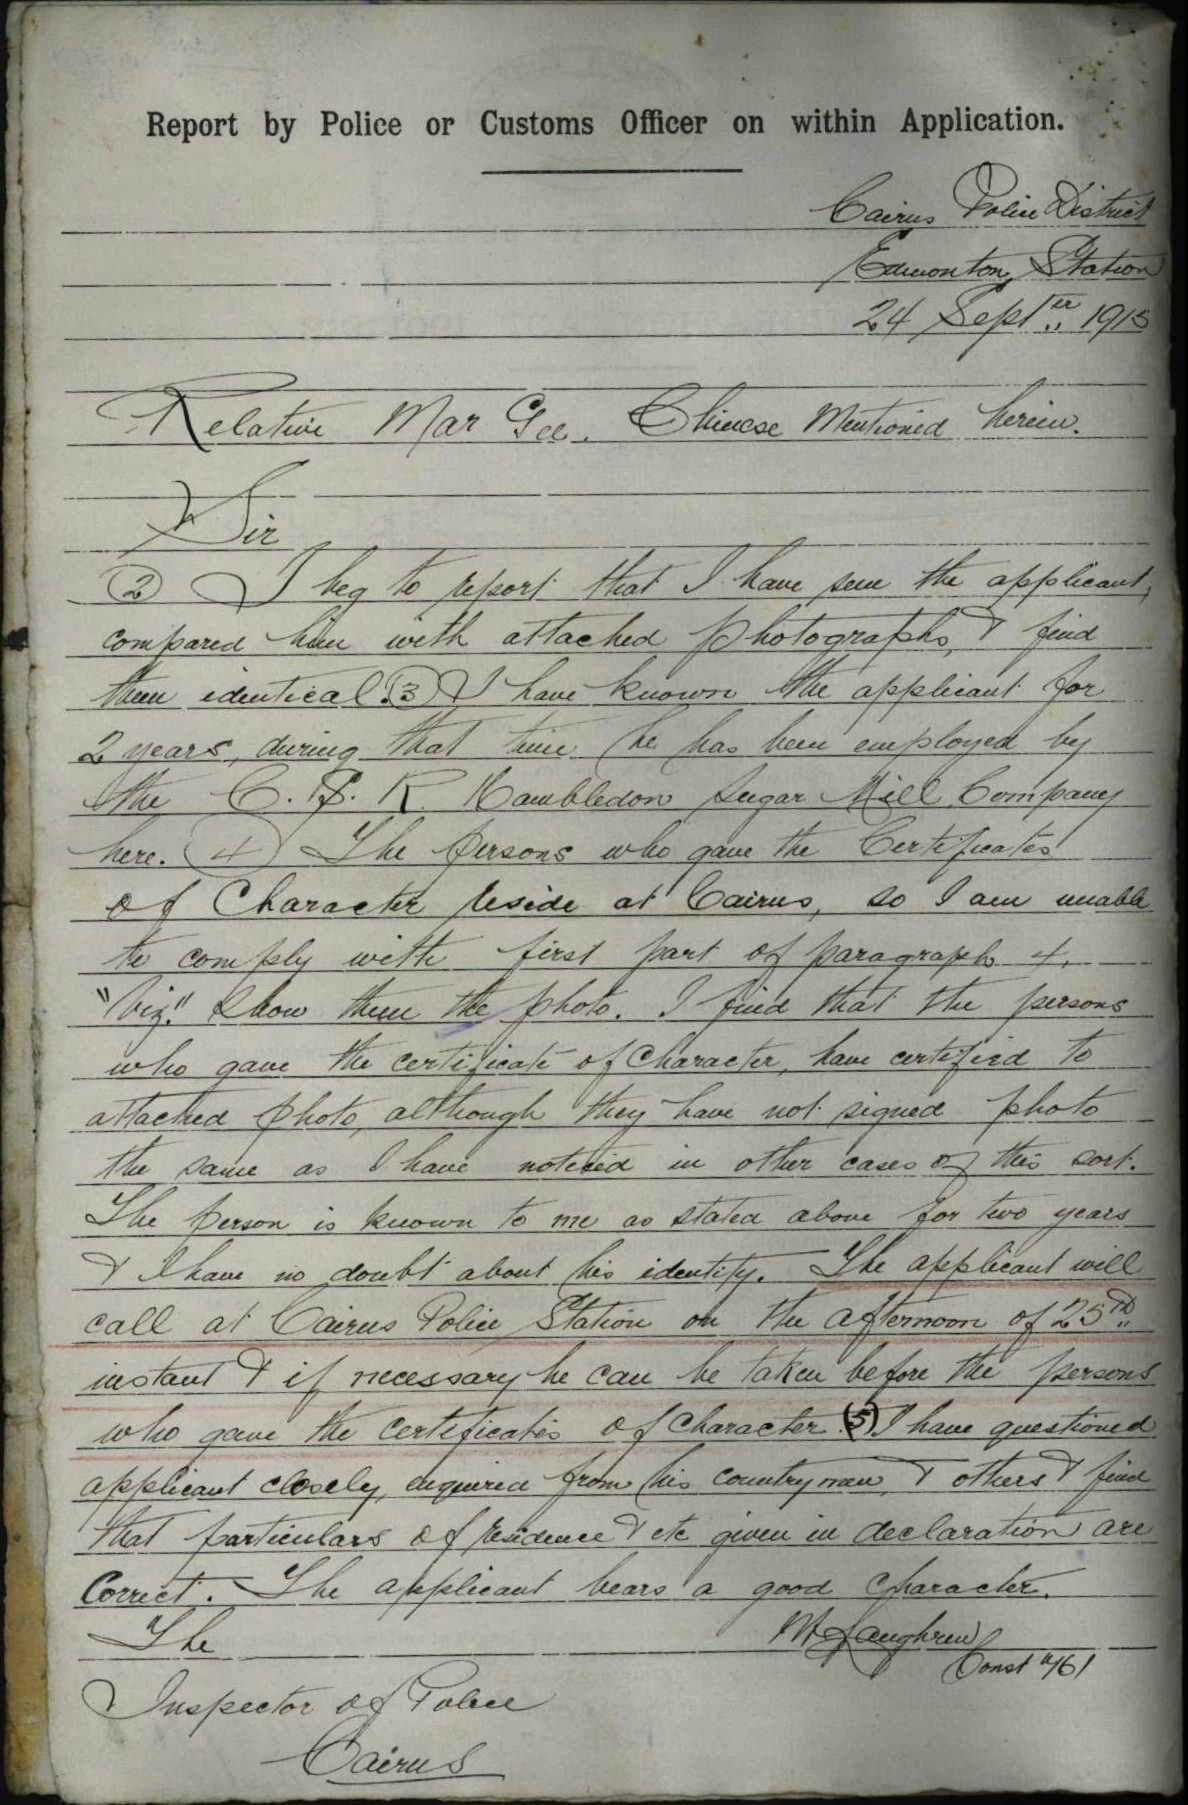 Report by Police or Customs Officer on within Application.
Cairns Police District
Edmonton Station
24 Septer 1915
Relative Mar Gee. Chinese Mentioned herein.
Sir
(2) I beg to report that I have seen the applicant,
compared him with attached photographs, & find
them identical. (3) I have known the applicant for
2 years, during that time he has been employed by
the C. S. R. Hambledon Sugar Mill Company
here. (4) The persons who gave the Certificates
of Character reside at Cairns, so I am unable
to comply with first part of paragraph 4.
"Viz." Show them the photo. I find that the persons
who gave the certificate of Character, have certified to
attached photo, although they have not signed photo
the same as I have noticed in other cases of this sort.
The person is known to me as stated above for two years
& I have no doubt about his identity. The applicant will
call at Cairns Police Station on the afternoon of 25th
instant & if necessary he can be taken before the persons
who gave the certificates of Character. (5) I have questioned
applicant closely, enquired from his countrymen, & others & find
that particulars of residence & etc given in declaration are
Correct. The applicant bears a good character.
The
Const 761
Inspector of Police
Cairns